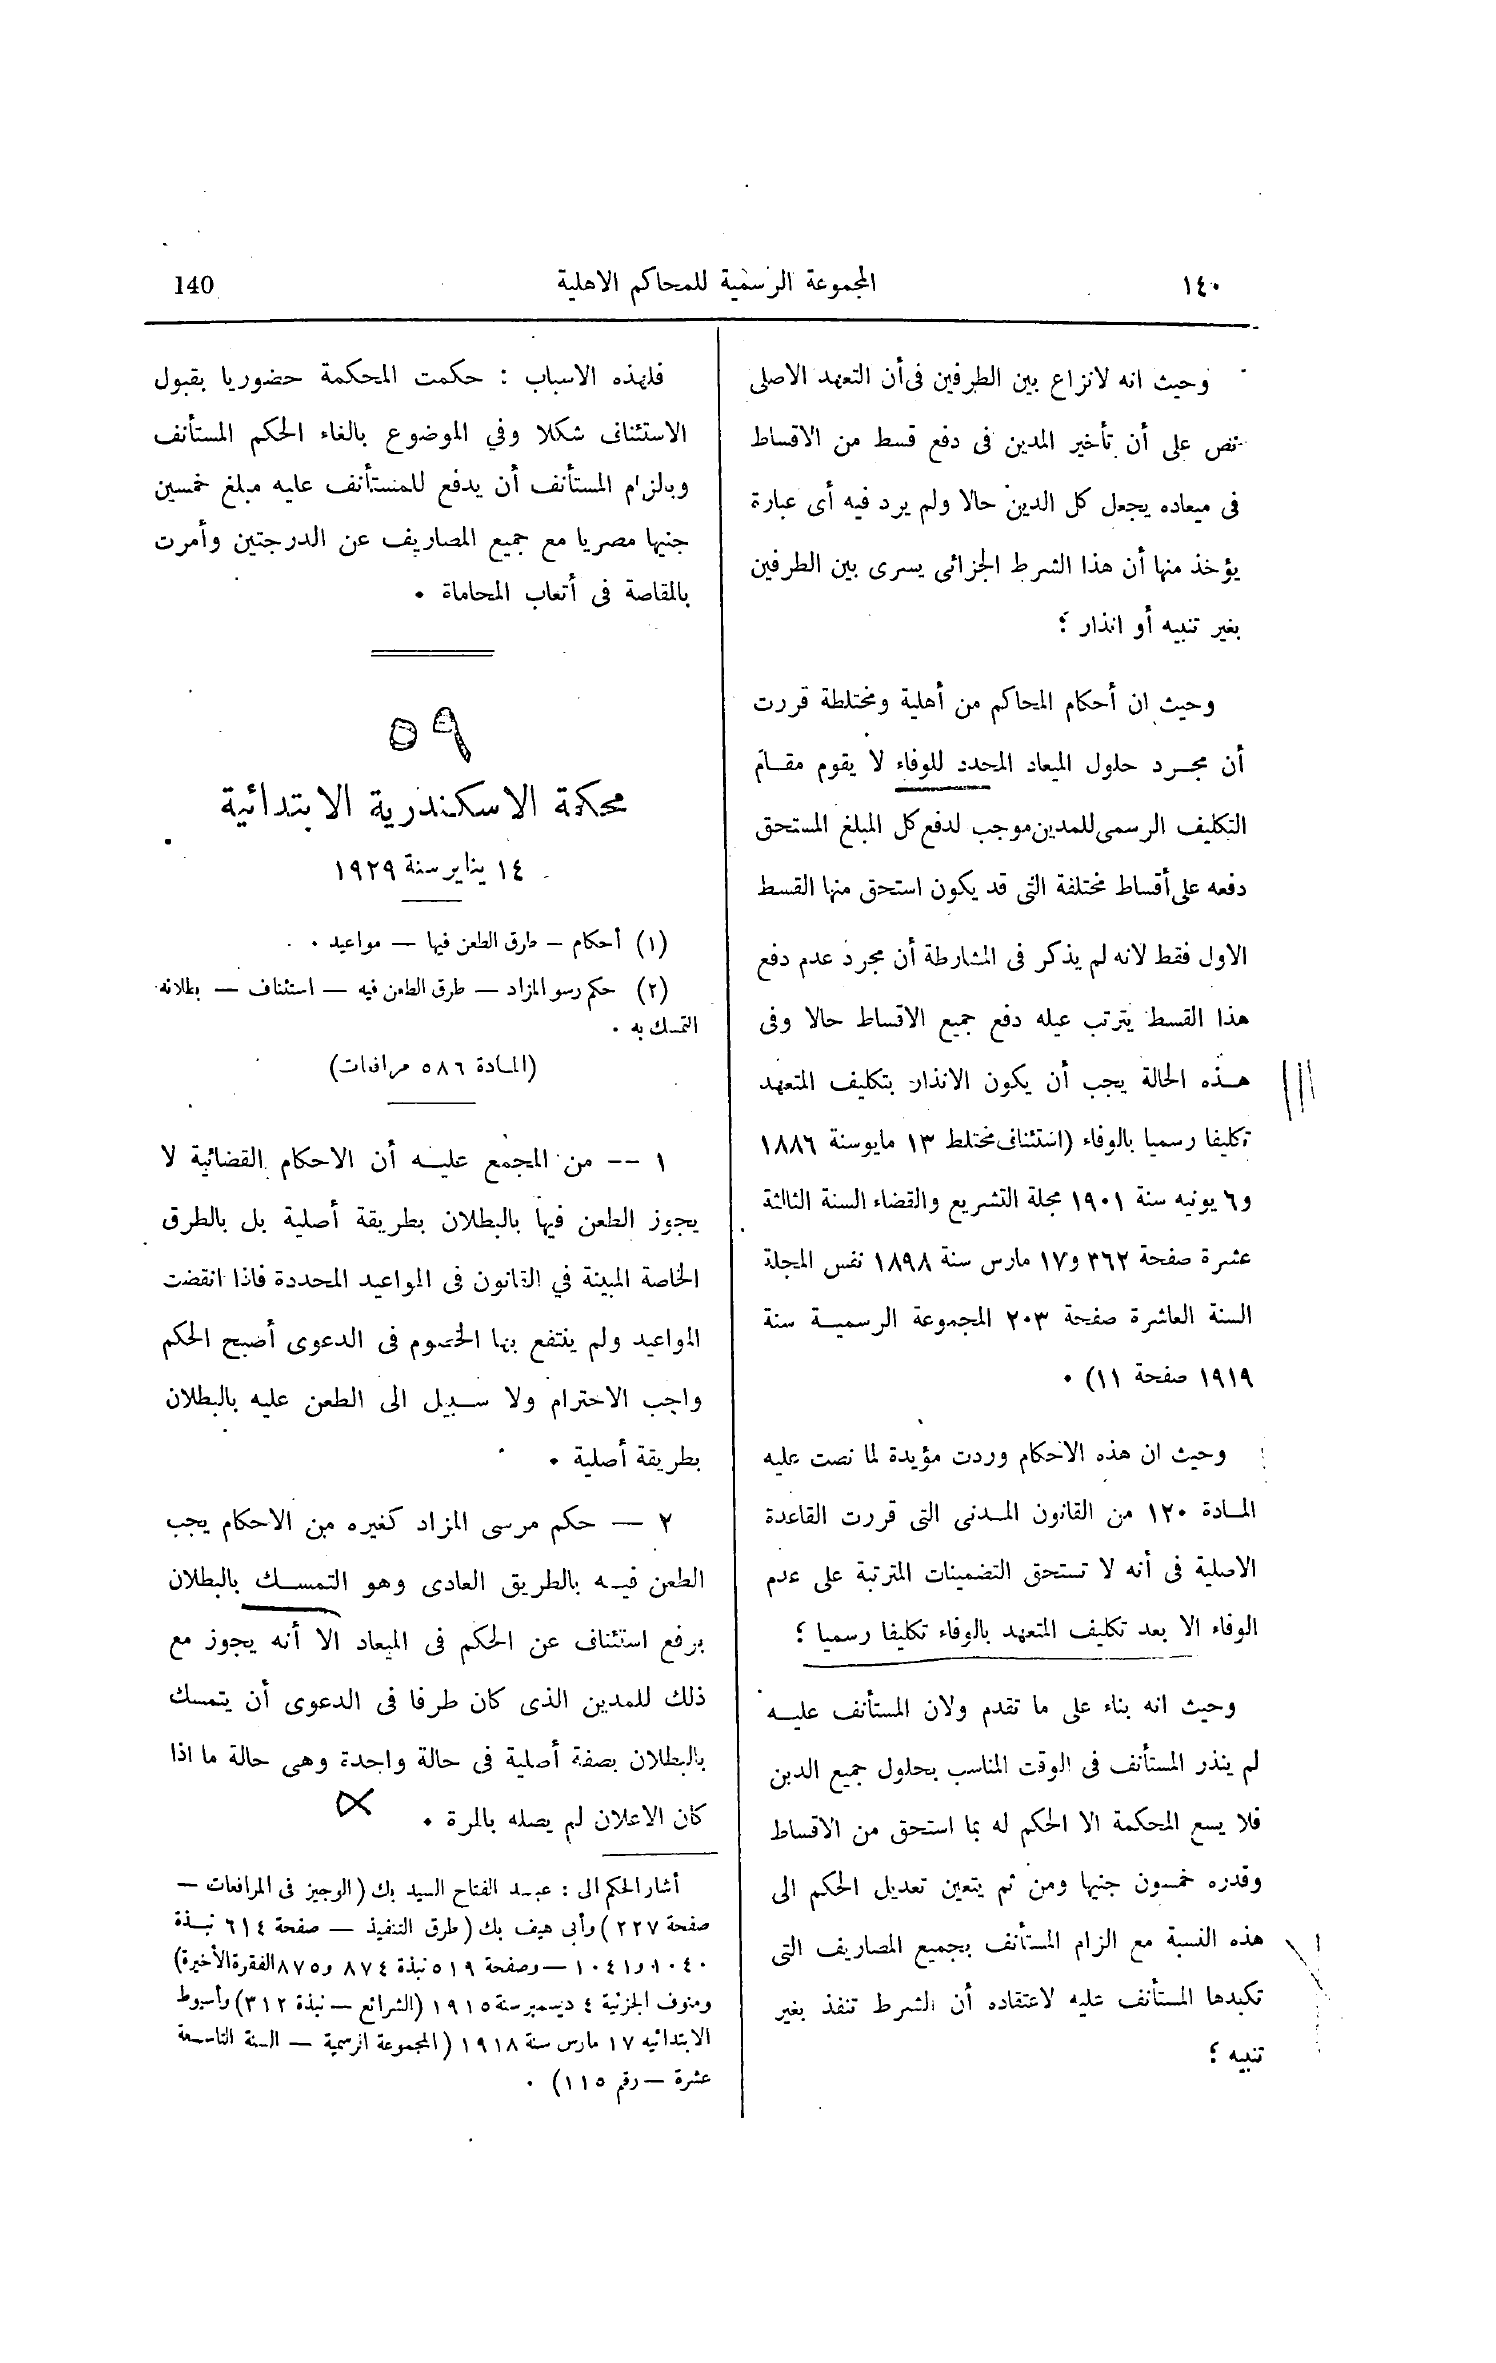 ١٤٠ المجموعة الرسمية للمحاكم الاهلية 140
وحيث انه لانزاع بين الطرفين فى أن التعهد الاصلى
نص على أن تأخير المدين فى دفع قسط من الاقساط
فى ميعاده يجعل كل الدين حالا ولم يرد فيه أى عبارة
يؤخذ منها أن هذا الشرط الجزائى يسرى بين الطرفين
بغير تنبيه أو انذار ؛
وحيث ان أحكام المحاكم من أهلية ومختلطة قررت
أن مجرد حلول الميعاد المحدد للوفاء لا يقوم مقام
التكليف الرسمى للمدين موجب لدفع كل المبلغ المستحق
دفعه على أقساط مختلفة التى قد يكون استحق منها القسط
الاول فقط لانه لم يذكر فى المشارطة أن مجرد عدم دفع
هذا القسط يترتب عيله دفع جميع الاقساط حالا وفى
هذه الحالة يجب أن يكون الانذار بتكليف المتعهد
تكليفا رسميا بالوفاء (استئناف مختلط ١٣ مايو سنة ١٨٨٦
و٦ يونيه سنة ١٩٠١ مجلة التشريع والقضاء السنة الثالثة
عشرة صفحة ٣٦٢ و١٧ مارس سنة ١٨٩٨ نفس المجلة
السنة العاشرة صفحة ٢٠٣ المجموعة الرسمية سنة
١٩١٩ صفحة ١١) ٠
وحيث ان هذه الاحكام وردت مؤيدة لما نصت عليه
المادة ١٢٠ من القانون المدنى التى قررت القاعدة
الاصلية فى أنه لا تستحق التضمينات المترتبة على عدم
الوفاء الا بعد تكليف المتعهد بالوفاء تكليفا رسميا ؛
وحيث انه بناء على ما تقدم ولان المستأنف عليه
لم ينذر المستأنف فى الوقت المناسب بحلول جميع الدين
فلا يسع المحكمة الا الحكم له بما استحق من الاقساط
وقدره خمسون جنيها ومن ثم يتعين تعديل الحكم الى
هذه النسبة مع الزام المستأنف بجميع المصاريف التى
تكبدها المستأنف عليه لاعتقاده أن الشرط تنفذ بغير
تنبيه ؛
فلهذه الاسباب : حكمت المحكمة حضوريا بقبول
الاستئناف شكلا وفي الموضوع بالغاء الحكم المستأنف
وبالزام المستأنف أن يدفع للمستأنف عليه مبلغ خمسين
جنيها مصريا مع جميع المصاريف عن الدرجتين وأمرت
بالمقاصة فى أتعاب المحاماة ٠
٥٩
محكمة الاسكندرية الابتدائية
١٤ يناير سنة ١٩٢٩
(١) أحكام – طرق الطعن فيها — مواعيد ٠
(٢) حكم رسو المزاد — طرق الطعن فيه — استئناف — بطلانه
التمسك به ٠
(المادة ٥٨٦ مرافعات)
١ –– من المجمع عليه أن الاحكام القضائية لا
يجوز الطعن فيها بالبطلان بطريقة أصلية بل بالطرق
الخاصة المبينة في القانون فى المواعيد المحددة فاذا انقضت
المواعيد ولم ينتفع بها الخصوم فى الدعوى أصبح الحكم
واجب الاحترام ولا سبيل الى الطعن عليه بالبطلان
بطريقة أصلية ٠
٢ — حكم مرسى المزاد كغيره من الاحكام يجب
الطعن فيه بالطريق العادى وهو التمسك بالبطلان
برفع استئناف عن الحكم فى الميعاد الا أنه يجوز مع
ذلك للمدين الذى كان طرفا فى الدعوى أن يتمسك
بالبطلان بصفة أصلية فى حالة واحدة وهى حالة ما اذا
كان الاعلان لم يصله بالمرة ٠
أشار الحكم الى : عبد الفتاح السيد بك (الوجيز فى المرافعات —
صفحة ٢٢٧) وأبى هيف بك (طرق التنفيذ — صفحة ٦١٤ نبذة
١٠٤٠ و١٠٤١ — وصفحة ٥١٩ نبذة ٨٧٤ و٨٧٥ الفقرة الأخيرة)
ومنوف الجزئية ٤ ديسمبر سنة ١٩١٥ (الشرائع — نبذة ٣١٢) وأسيوط
الابتدائيه ١٧ مارس سنة ١٩١٨ (المجموعة الرسمية — السنة التاسعة
عشرة — رقم ١١٥) ٠